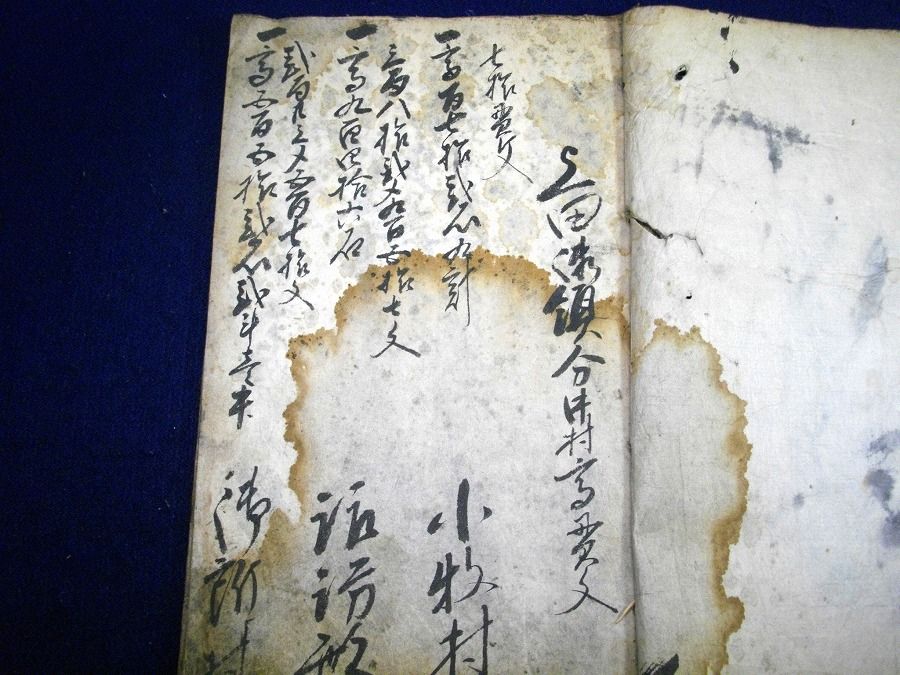 上田御領分中村高貫文
七拾貫文
一高百七拾弐石九斗
小牧村
三百八拾弐文九百五拾七文
一高九百四拾六石
諏訪形
弐百九三文五百七拾文
一高五百五拾弐石弐斗壱升
御所村